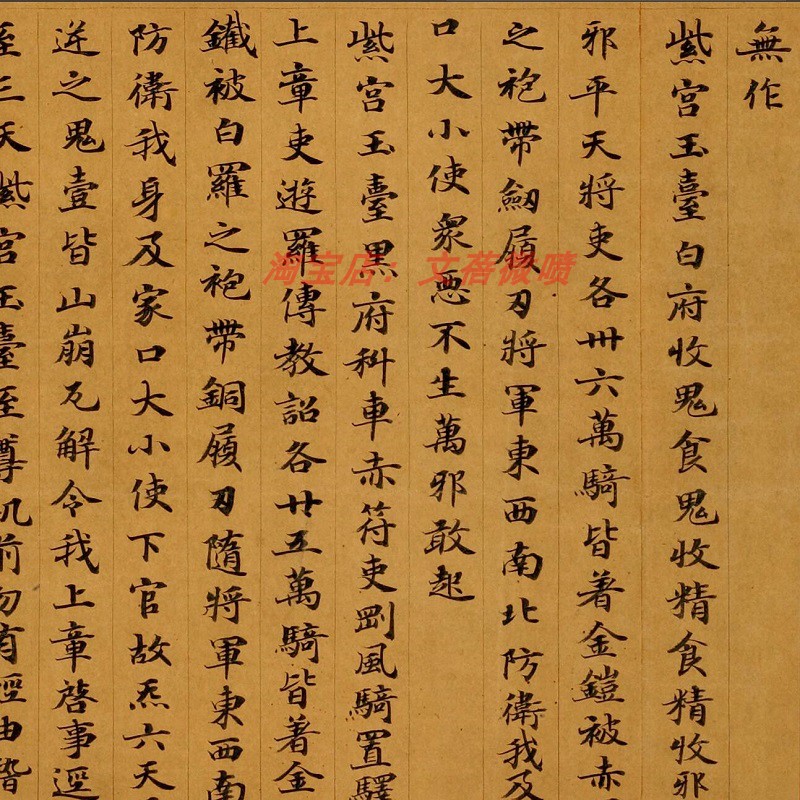 無作
紫宮玉臺白府收鬼食鬼收精食精收邪
邪平天將吏各卅六萬騎皆著金鎧被赤
之袍帶劔履刀將軍東西南北防衛我及
口大小使衆惡不生萬邪敢起
紫宮玉臺黒府科車赤符吏剛風騎置驛
上章吏遊羅傳教詔各廿五萬騎皆著金
鐵被白羅之袍帶銅履刀隨將軍東西南
防衛我身及家口大小使下官故炁六天
逆之鬼壹皆山崩瓦解令我上章啓事逕
至三天紫宮玉臺至尊机前勿有逕由稽
淘宝店：文蓓微喷